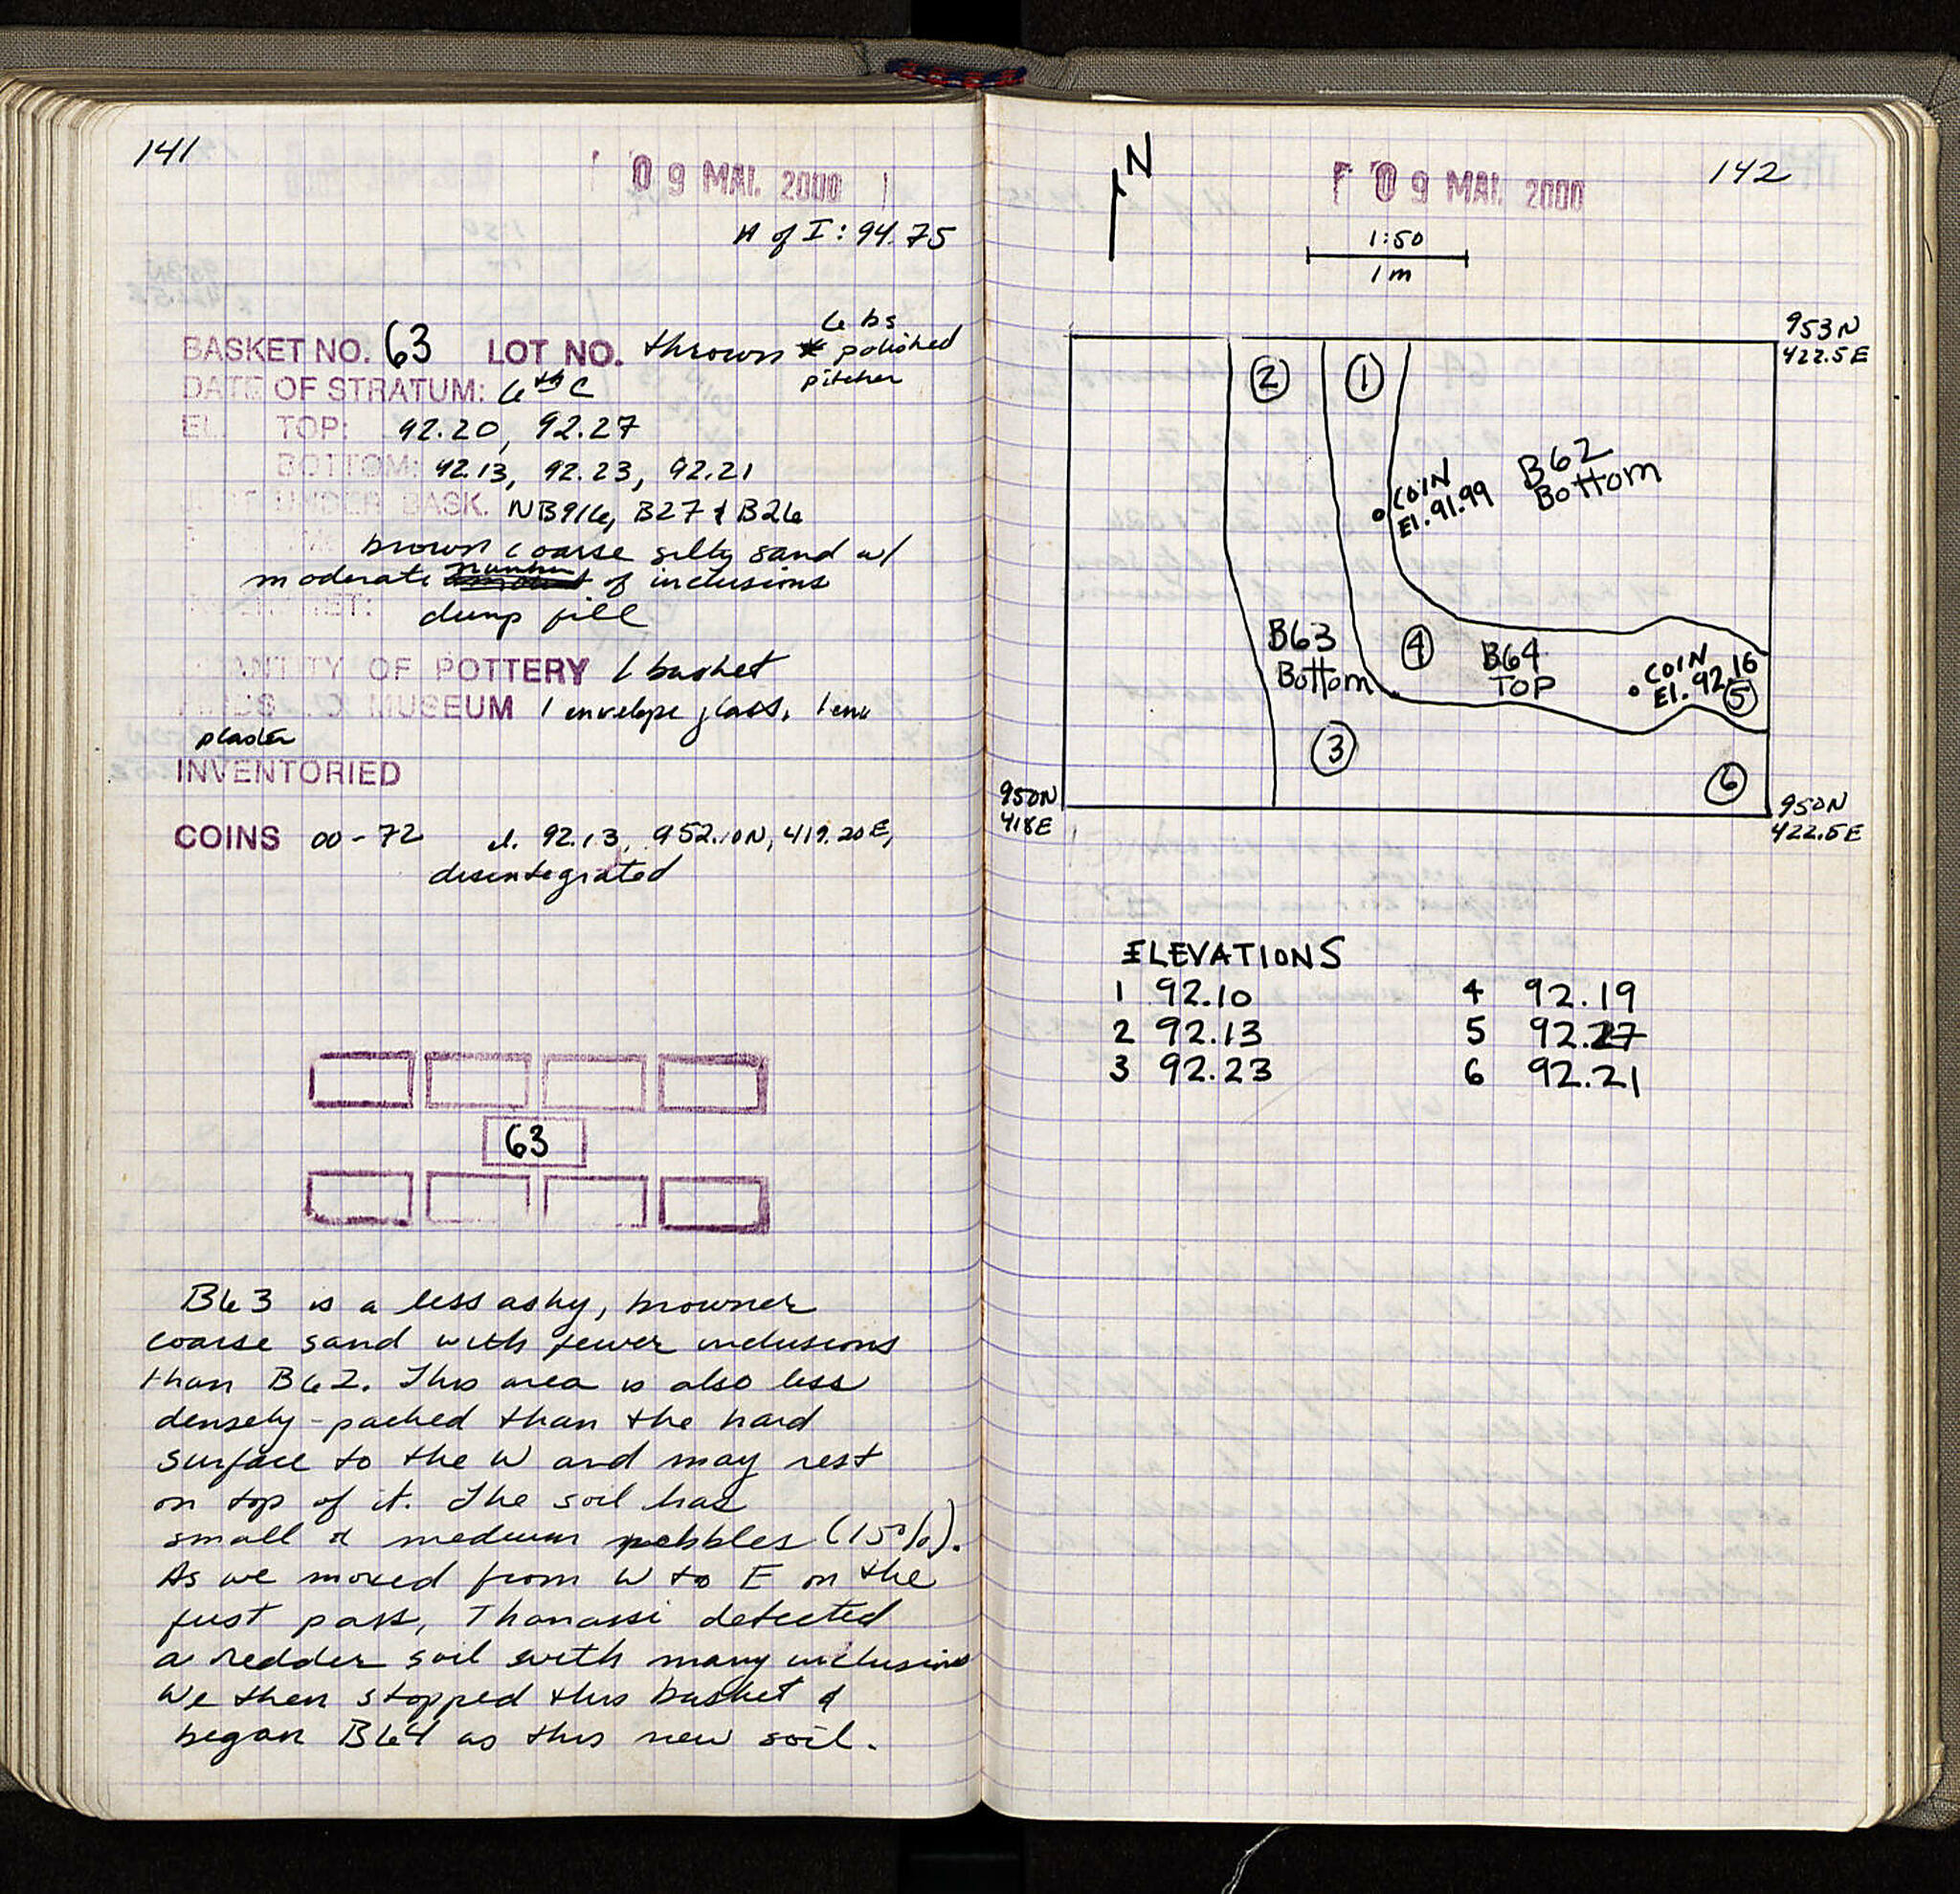 141
09 MAI. 2000
H of I: 94.75
BASKET NO. 63 LOT NO. thrown * 6 bs polished pitcher
DATE OF STRATUM: 6th C
EL. TOP: 92.20, 92.27
BOTTOM: 92.13, 92.23, 92.21
UNDER BASK. NB916, B27 & B26
brown coarse silty sand w/
moderate number of inclusions
dump fill
QUANTITY OF POTTERY 1 basket
MUSEUM 1 envelope glass, 1 env
plaster
INVENTORIED
COINS 00-72 el. 92.13, 952.10N, 419.20E,
disentegrated
63
B63 is a less ashy, browner
coarse sand with fewer inclusions
than B62. This area is also less
densely-packed than the hard
surface to the W and may rest
on top of it. The soil has
small & medium pebbles (15%).
As we moved from W to E on the
first pass, Thanassi detected
a redder soil with many inclusions
We then stopped this basket &
began B64 as this new soil.
142
09 MAI. 2000
N
1:50
1 m
953N
422.5E
2
1
COIN
El. 91.99
B62
Bottom
B63
Bottom
4
B64
TOP
COIN
El. 92.16
5
3
6
950N
418E
950N
422.5E
ELEVATIONS
1 92.10 4 92.19
2 92.13 5 92.27
3 92.23 6 92.21